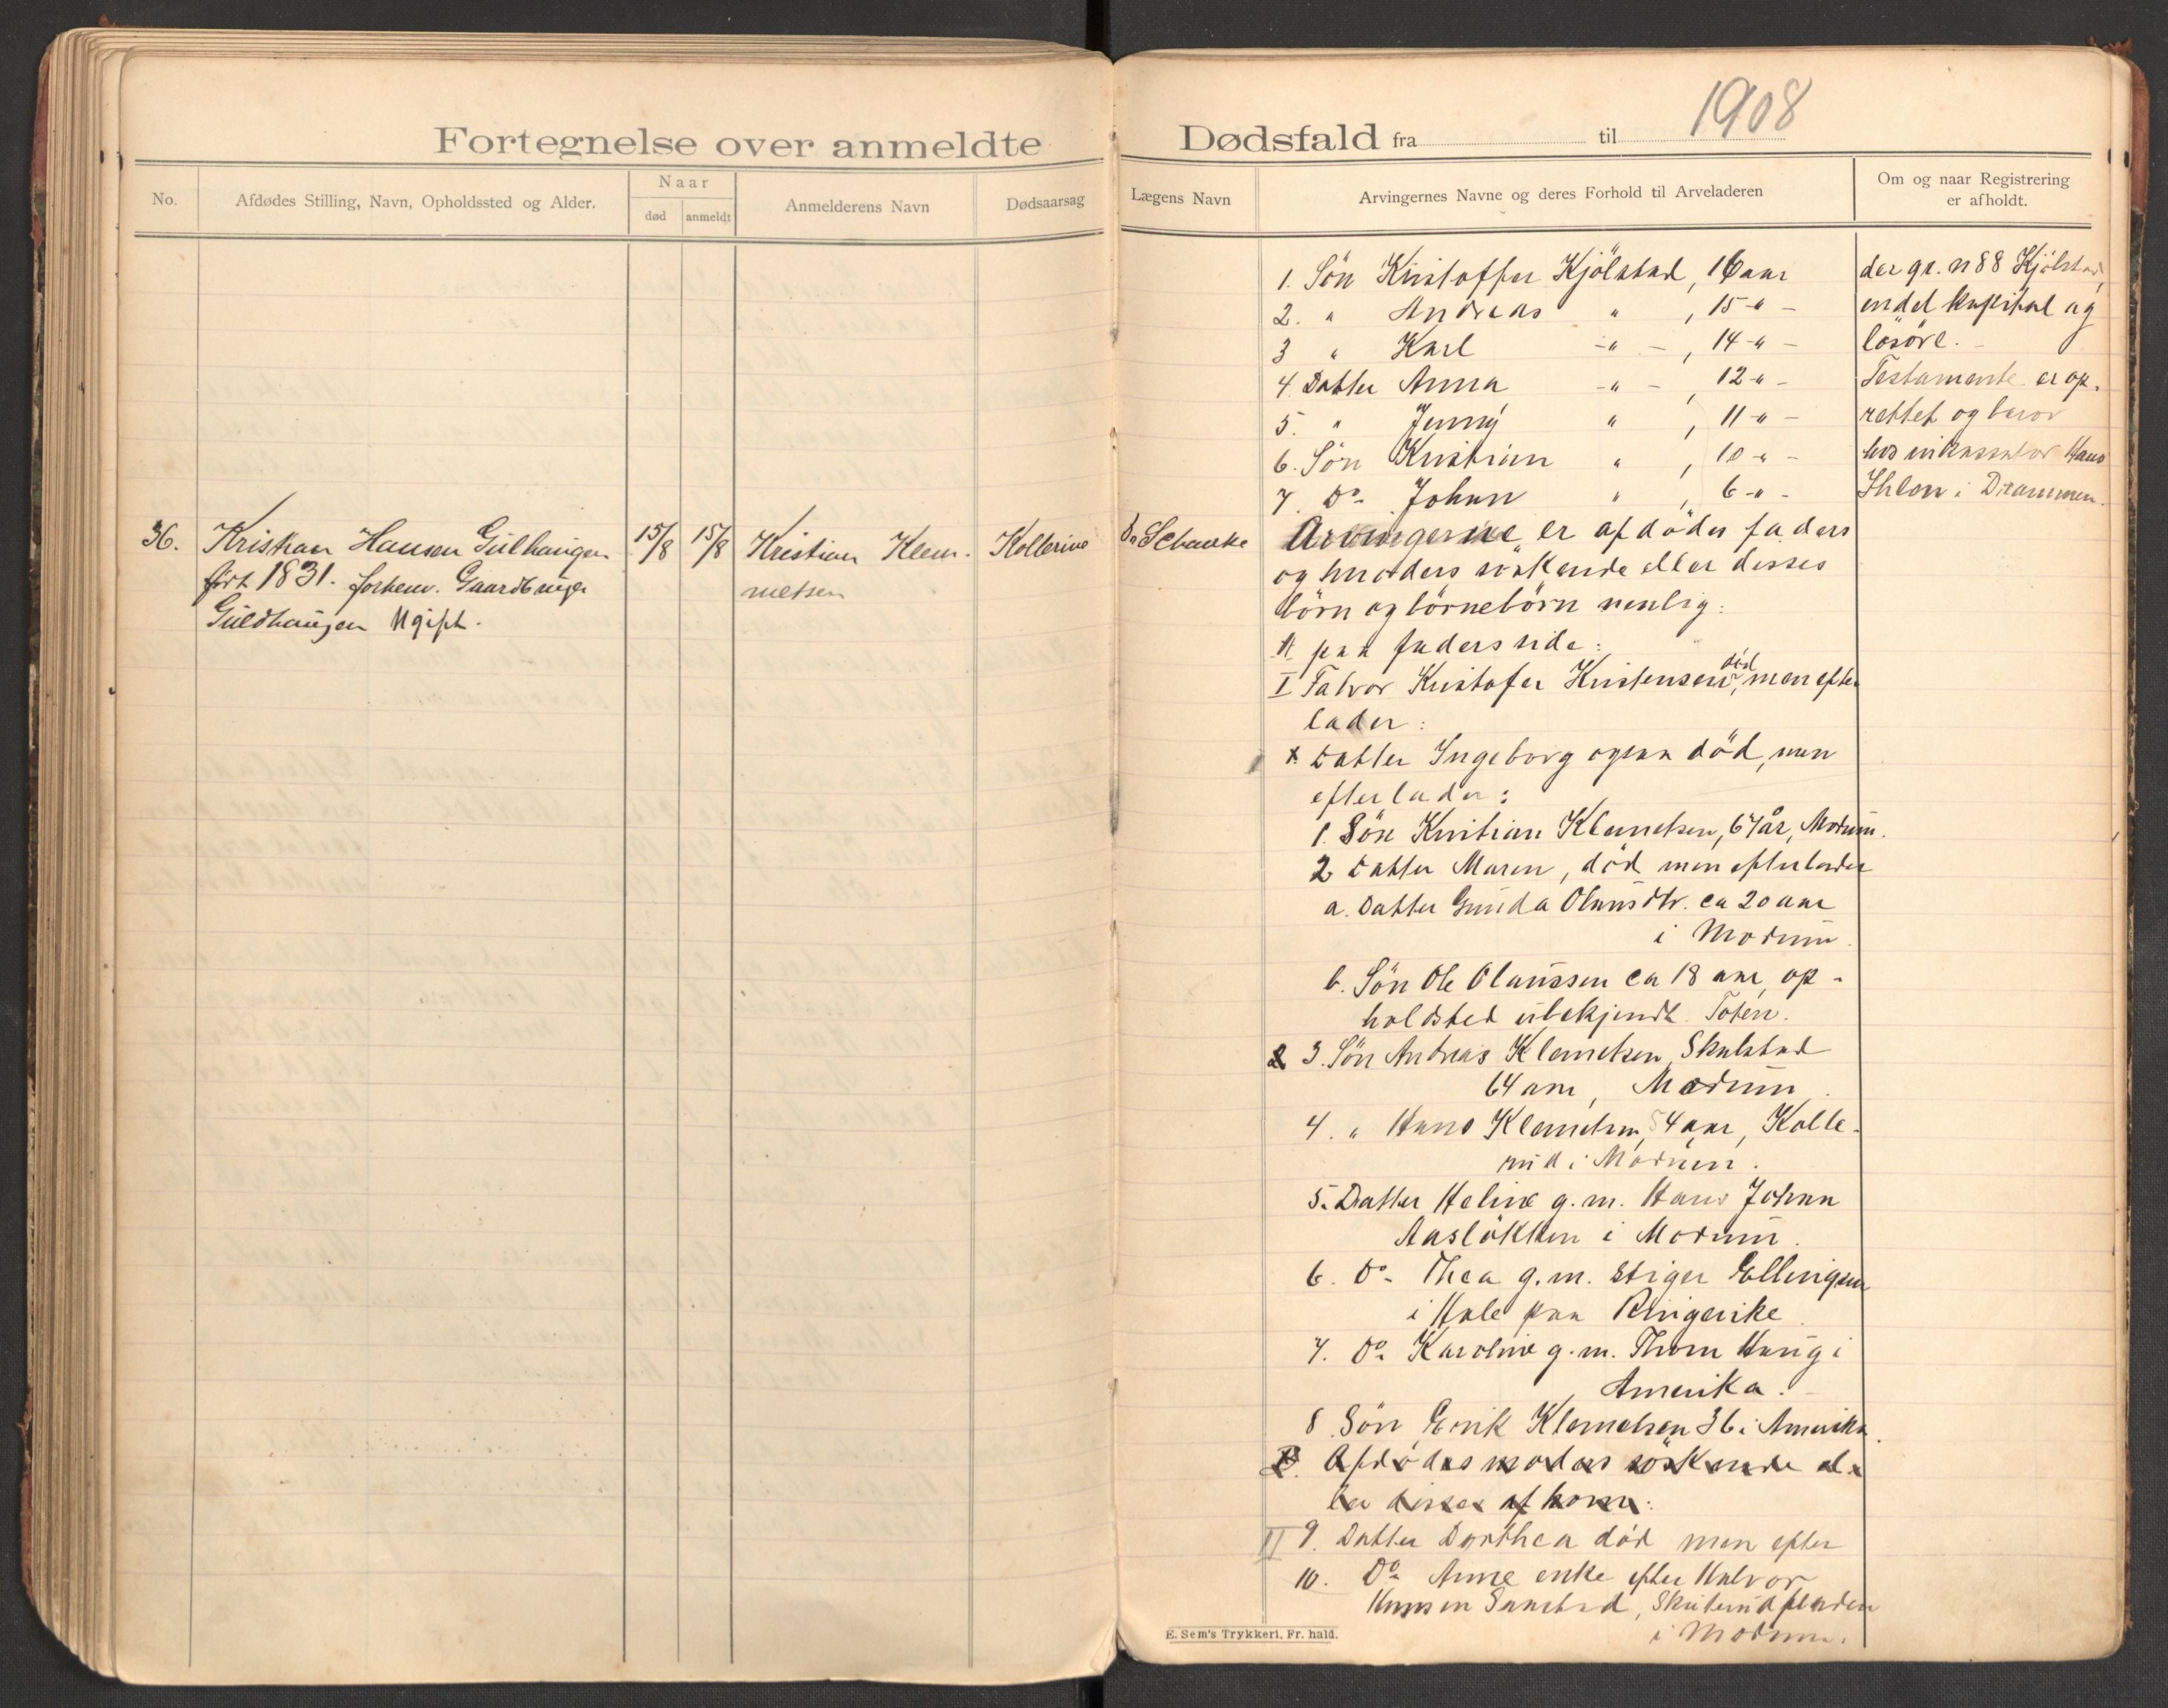 Fortegnelse over anmeldte Dødsfald fra til 1908
No.
Afdødes Stilling, Navn, Opholdssted og Alder.
Naar
død
anmeldt
Anmelderens Navn
Dødsaarsag
Lægens Navn
Arvingernes Navne og deres Forhold til Arveladeren
Om og naar Registrering
er afholdt.
1. Sön Kristoffer Kjölstad, 16 aar
2. " Andreas " , 15 -"-
3 " Karl -"- , 14 -"-
4. Datter Anna -"- , 12 -"-
5. " Jenny " , 11 -"-
6. Sön Kristian " , 10 -"-
7. Do- Johan " , 6 -"-
der gr. n 88 Kjölstad,
endel kapital og
lösöre. -
Testamente er op-
rettet og beror
hos inkassator Hans
Ihlen i Drammen.
36.
Kristian Hansen Gulhaugen
född 1831. forhenv. Gaardbruger
Guldhaugen Ugift.
15/8
15/8
Kristian Klem-
metsen
Kollerine
Dr Schanke
Arvingerne er afdödes faders
og moders söskende eller disses
börn og börnebörn nemlig:
A paa faders side:
I Farbror Kristofer Kristensen, död, men efter
lader:
x Datter Ingeborg ogsaa död, men
efterlader:
1. Sön Kristian Klemetsen, 67 år, Modum.
2 Datter Maren, död men efterlader
a. Datter Gunda Olausdtr. ca 20 aar
i Modum.
b. Sön Ole Olaussen ca 18 aar, op-
holdsted ubekjendt. Toten.
3. Sön Andreas Klemetsen Skalstad
64 aar, Modum.
4. " Hans Klemetsen, 54 aar, Kolle-
rud i Modum.
5. Datter Heline g. m. Hans Johan
Aaslökken i Modum.
6. Do- Thea g. m. Stiger Ellingsen
i Hole paa Ringerike.
7. Do- Karoline g. m. Thom Haug i
Amerika.
8. Sön Erik Klemetsen 36 i Amerika.
B. Afdödes moders söskende el-
ler disses afkom:
II 9. Datter Dorthea död men efter
10. Do- Anne enke efter Halvor
Hansen Sandstad, Skuterudfladen
i Modum.
E. Sem's Trykkeri, Fr. hald.